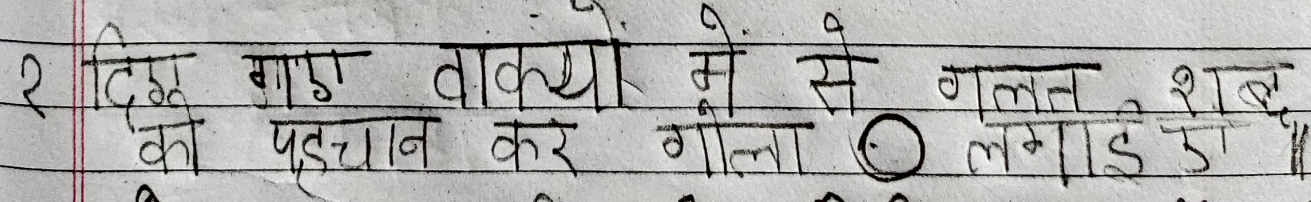 २ दिए गए वाक्यों में से गलत शब्द
को पहचान कर गोला ○ लगाइए ॥